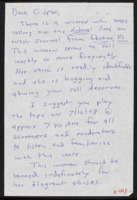 Dear Crispin,
There is a woman who keeps
calling on the
line on
Wash Journal from
This woman seems to call
weekly or more frequently.
Her voice is easily identifiable
and she is bogging and
abusing your call devotion.
I suggest you play
the tape on
@
approx 7:20 Am for all
screeners and moderators
to listen and familiarize
with this voice.
This woman should be
banned indefinitely for
her flagrant abuses.